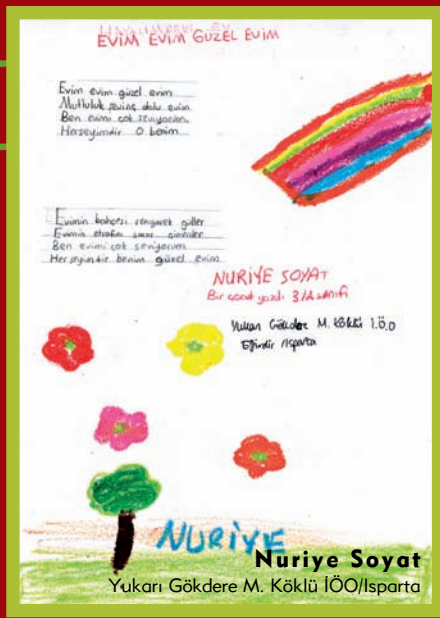 HAYALİMDEKİ EV
EVİM EVİM GÜZEL EVİM
Evim evim güzel evim
Mutluluk sevinç dolu evim
Ben evimi çok seviyorum
Herşeyimdir O benim
Evimin bahçesi rengarek güller
Evimin etrafını sarar çimenler
Ben evimi çok seviyorum
Herşeyimdir benim güzel evim
NURİYE SOYAT
Bir çocuk yazdı 3/A sınıfı
Yukarı Gökdere M. Köklü İ.Ö.O
Eğirdir / Isparta
NURİYE
Nuriye Soyat
Yukarı Gökdere M. Köklü İÖO/Isparta